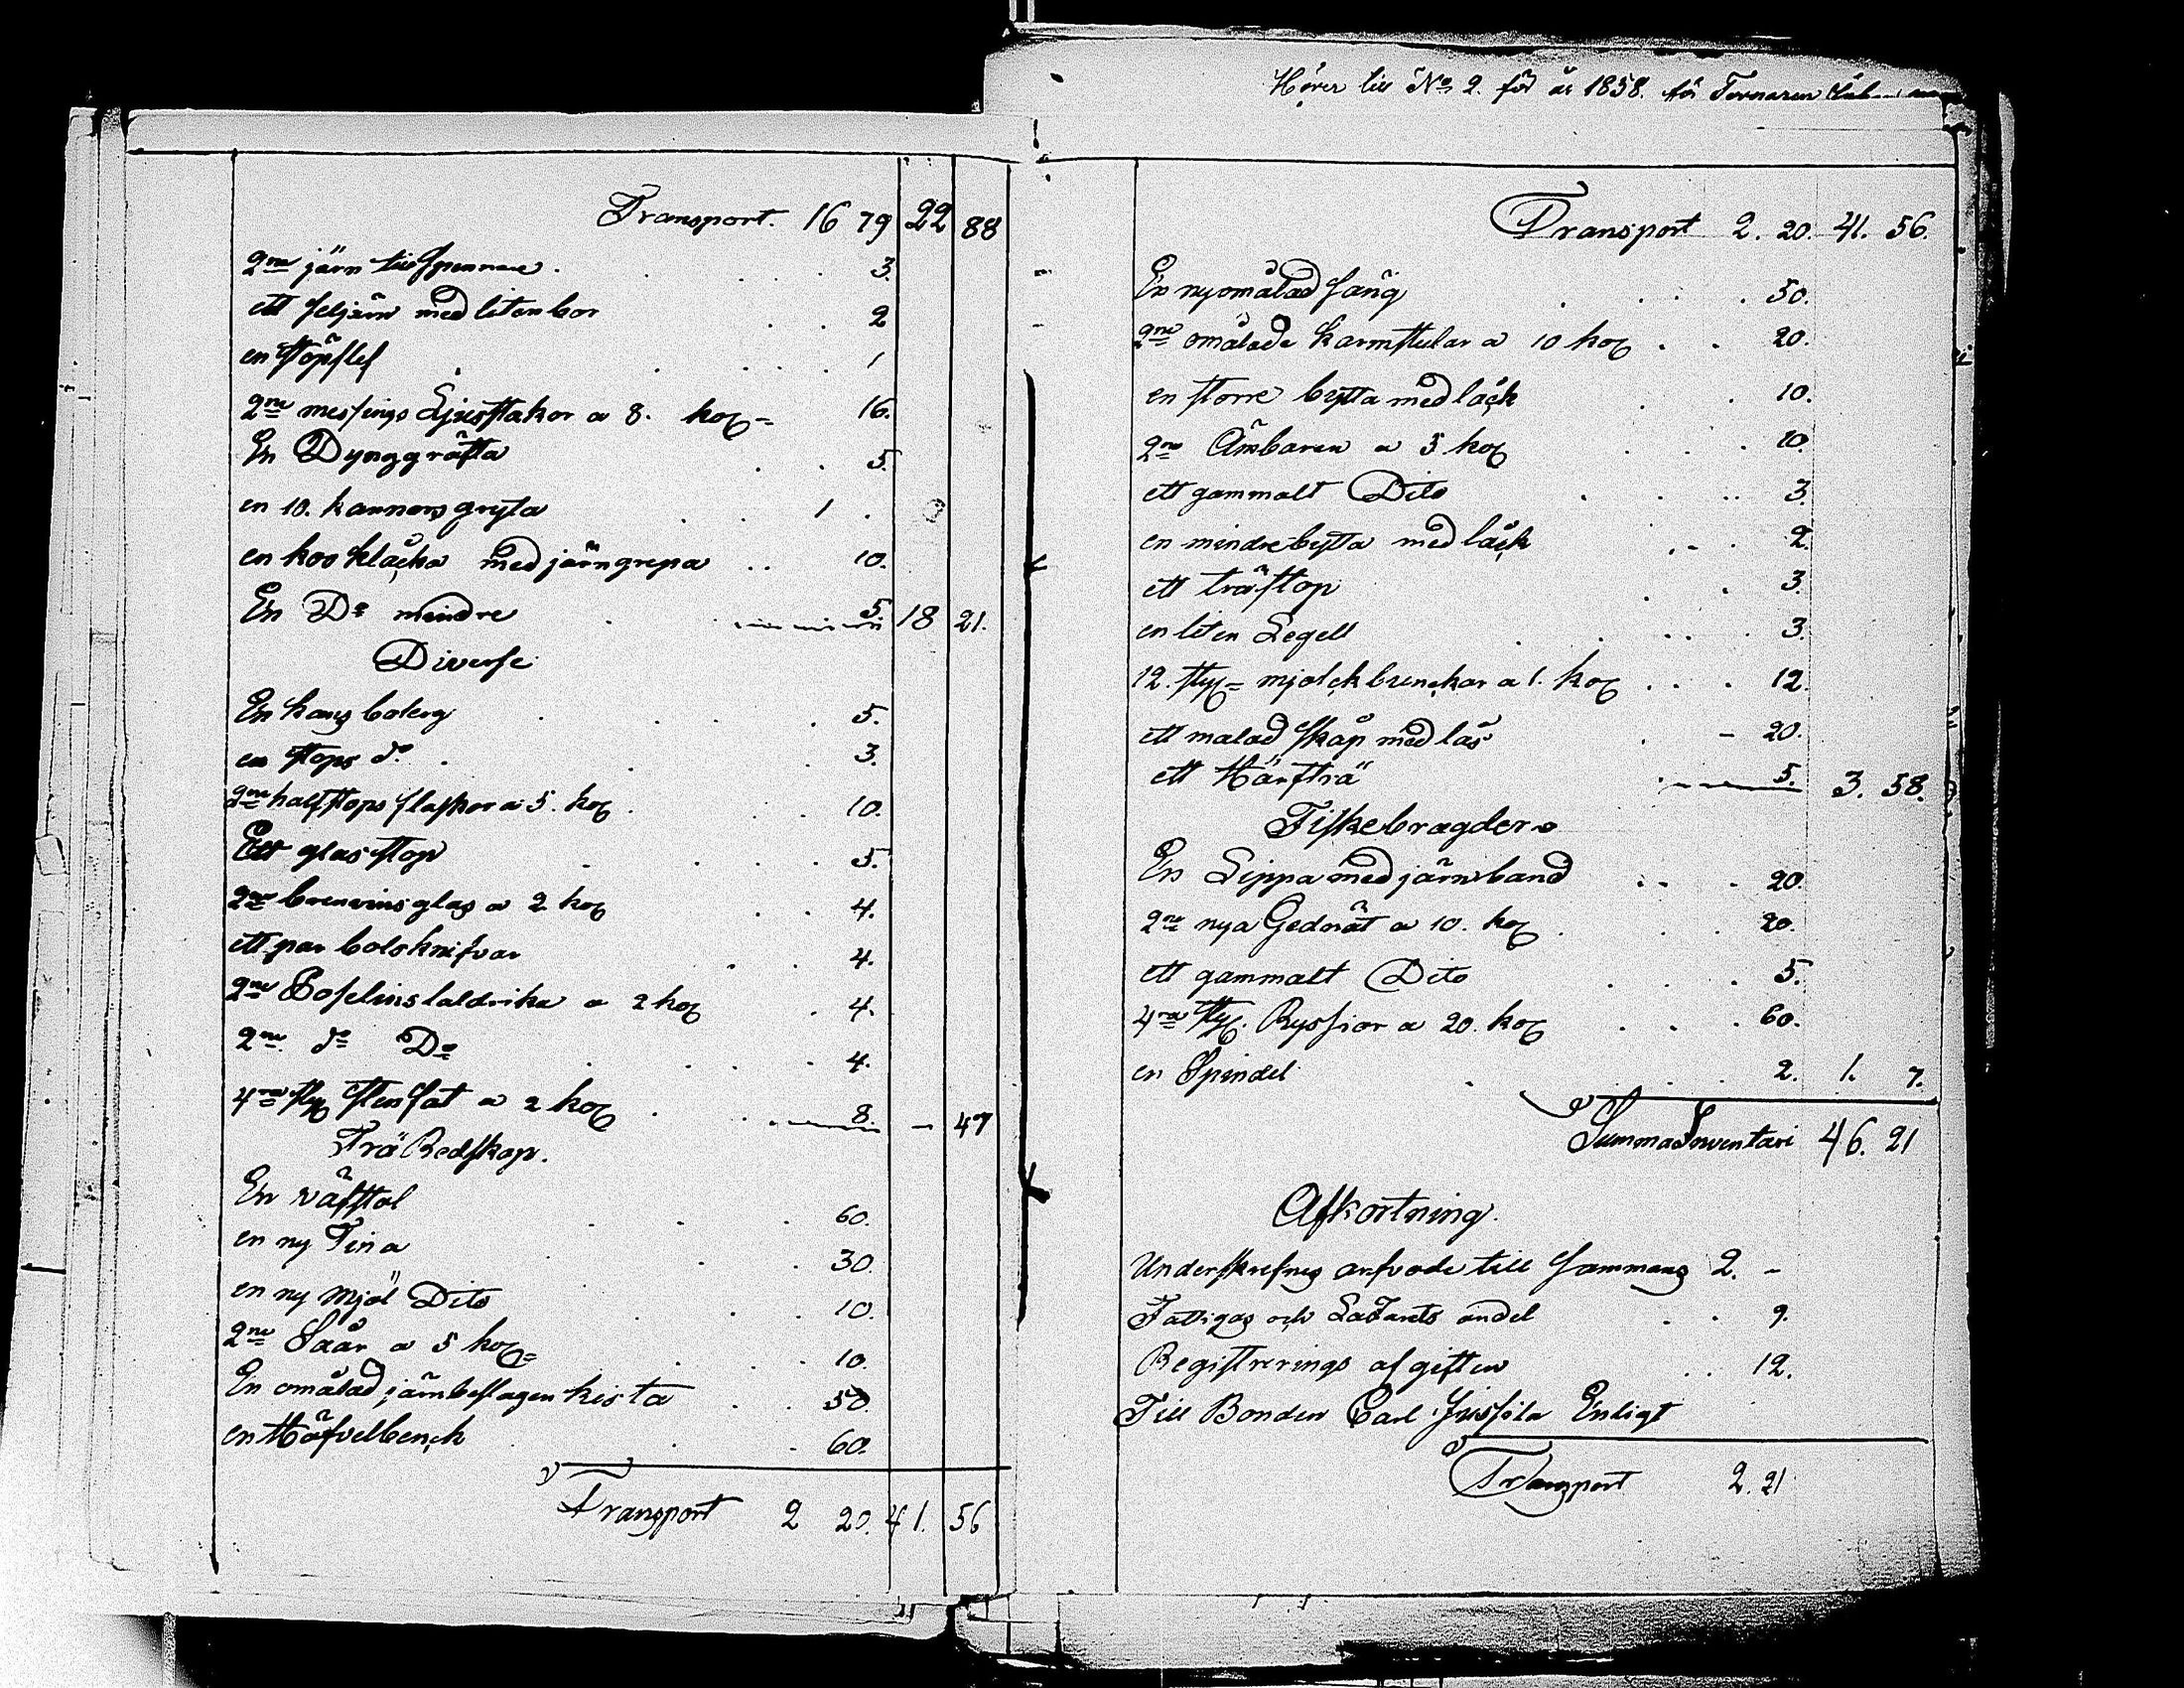 Transport. 16 79 22 88
2ne järn till Spennare . 3.
ett feljärn med liten bor 2
en stöpslef 1
2ne messings Ljusstakor a 8. kop= 16.
En Dynggräfta 5.
en 10. kannors gryta 1 .
en koo klåcka med järngrepa 10.
En Do mindre 5 18 21.
Diverse
En kans boterg 5.
en stops do 3.
2ne halfstops flaskor a 5. kop 10.
Ett glas stop 5.
2ne brenvins glas a 2 kop 4.
ett par bolsknifvar 4.
2ne Poselins taldrika a 2 kop 4.
2ne do Do 4.
4ra sty stenfat a 2 kop 8. – 47
Trä Redskap.
Enväfstol 60.
en ny Tina 30.
en ny Mjöl Dito 10.
2ne Såår a 5 kop= 10.
En omålad järnbeslagen kista 50
en Höfvelbenck 60.
Transport 2 20. 41. 56
Hörer till No 2. för år 1858. för Tornaren
Transport 2. 20. 41. 56.
En ny omålad säng 50.
2ne omålade karmstolar a 10 kop 20.
en större bytta med låck 10.
2ne Ämbaren a 5 kop 10.
ett gammalt Dito 3.
en mindre bytta med låck 2.
ett trästop 3.
en liten Legell 3.
12. sty= mjölckbunckar a 1. kop 12.
ett malad skåp med lås – 20.
ett Härfträ 5. 3. 58.
Fiskebragder
En Sippa med järnband 20.
2ne nya Gednät a 10. kop 20.
ett gammalt Dito 5.
4ra sty. Ryssior a 20. kop 60.
en Spindel 2. 1. 7.
Summa Inventari 46. 21
Afkortning.
Underskrefnes arfvode till sammans 2. –
Fattigas och Lazarets andel 9.
Registrerings afgiften 12.
Till Bonden Carl Enligt
Transport 2. 21